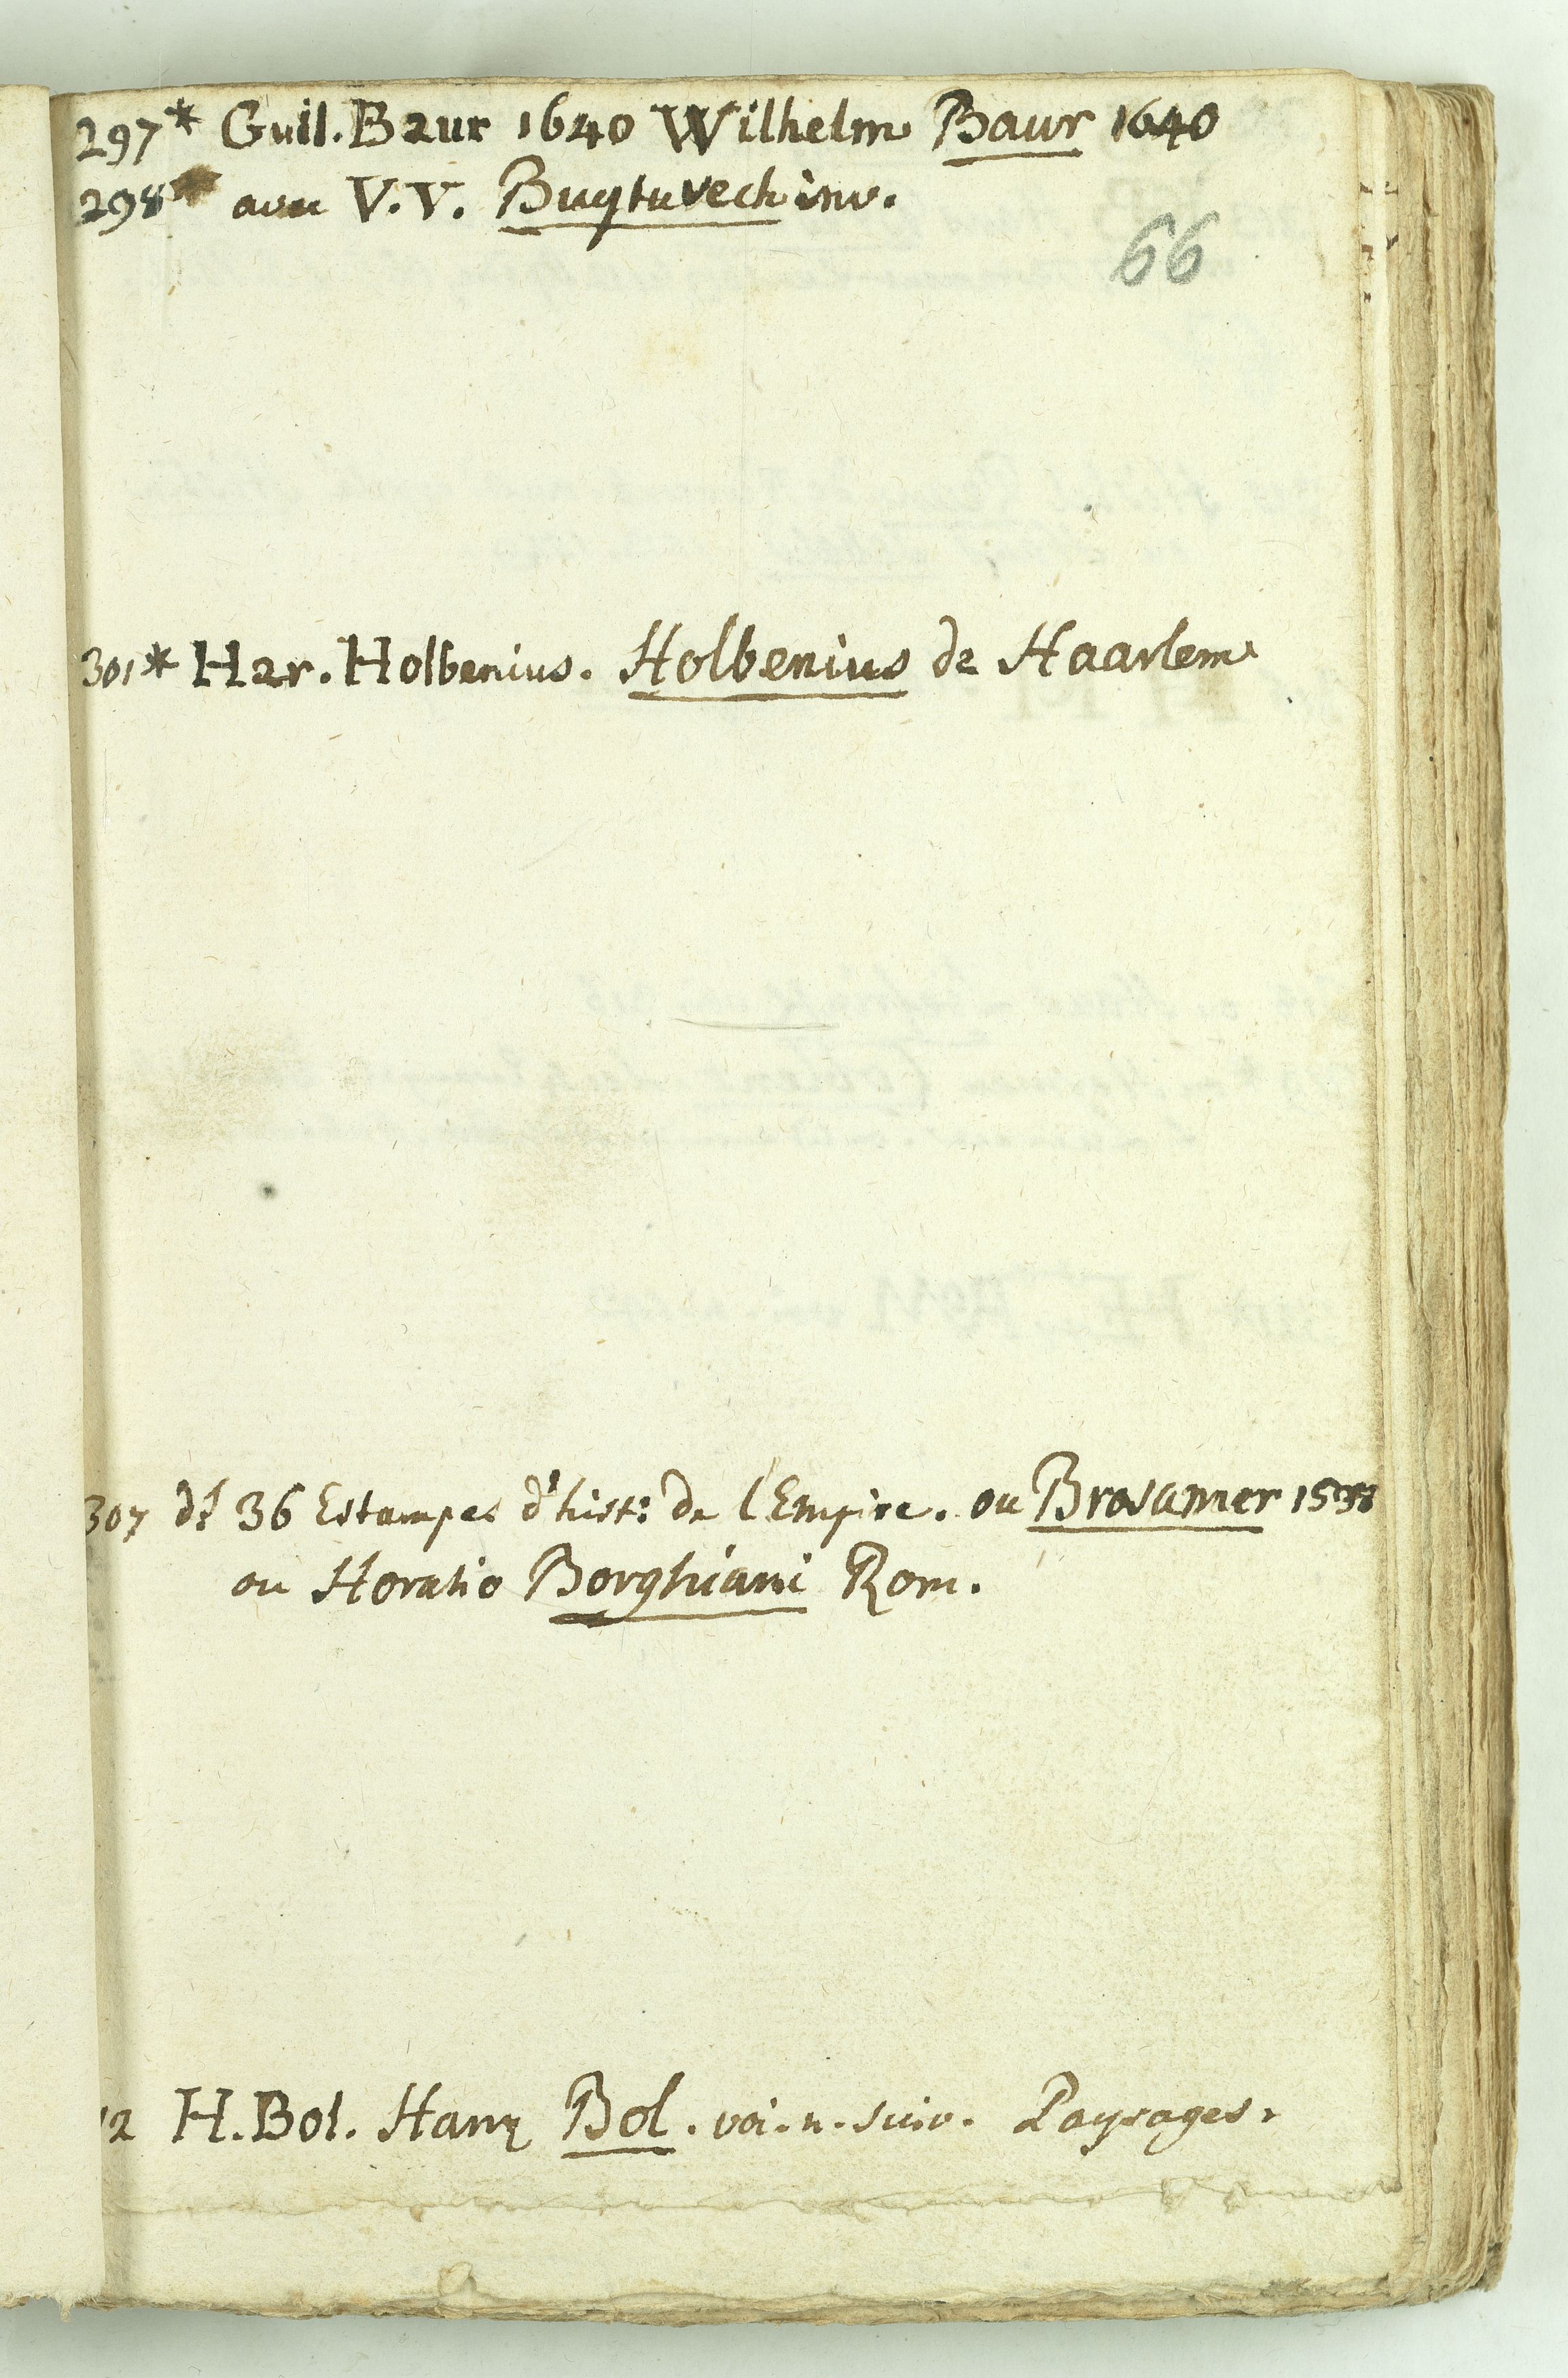 297* Guil. Baur 1640 Wilhelm Baur 1640
298* avec V.V. Buytuvech inv.
66
301* Har. Holbenius. Holbenius de Haarlem
307 ds 36 Estampes d'hist: de l'Empire. ou Brosamer 1538
ou Horatio Borghiani Rom.
12 H. Bol. Hanz Bol. voi. n. suiv. Paysages.